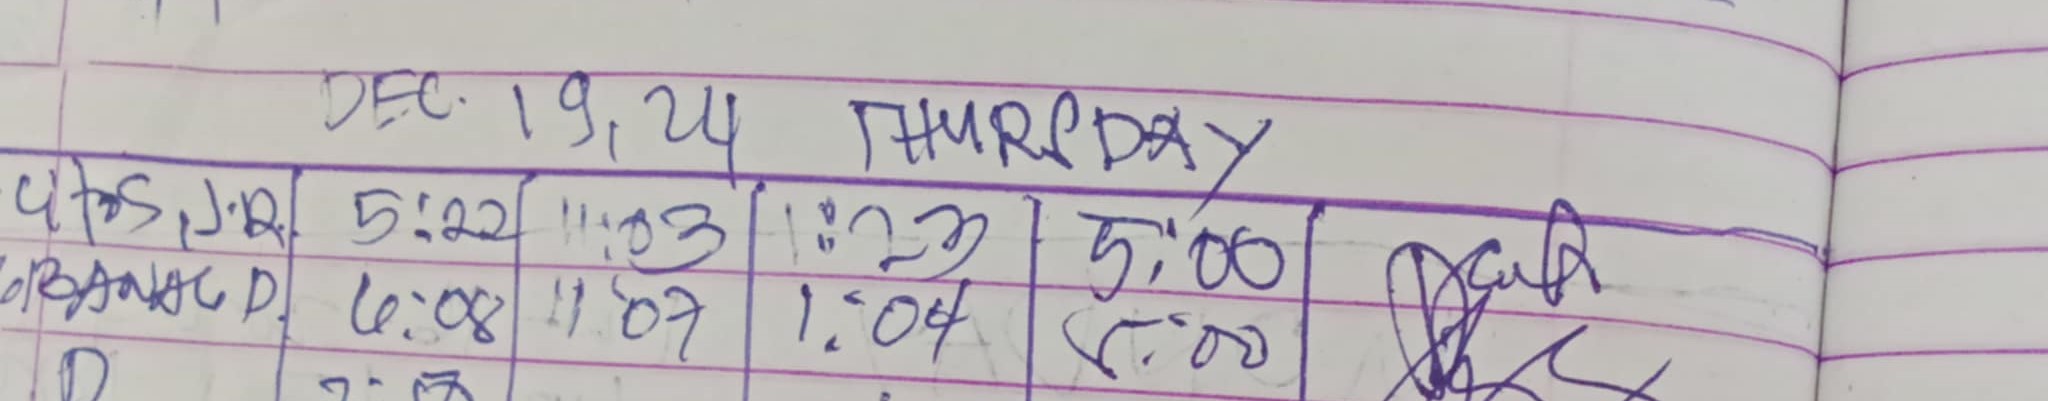 DEC. 19, 24 THURSDAY
J.R. 5:22 11:03 1:23 5:00
D. 6:08 11:07 1:04 5:00
D